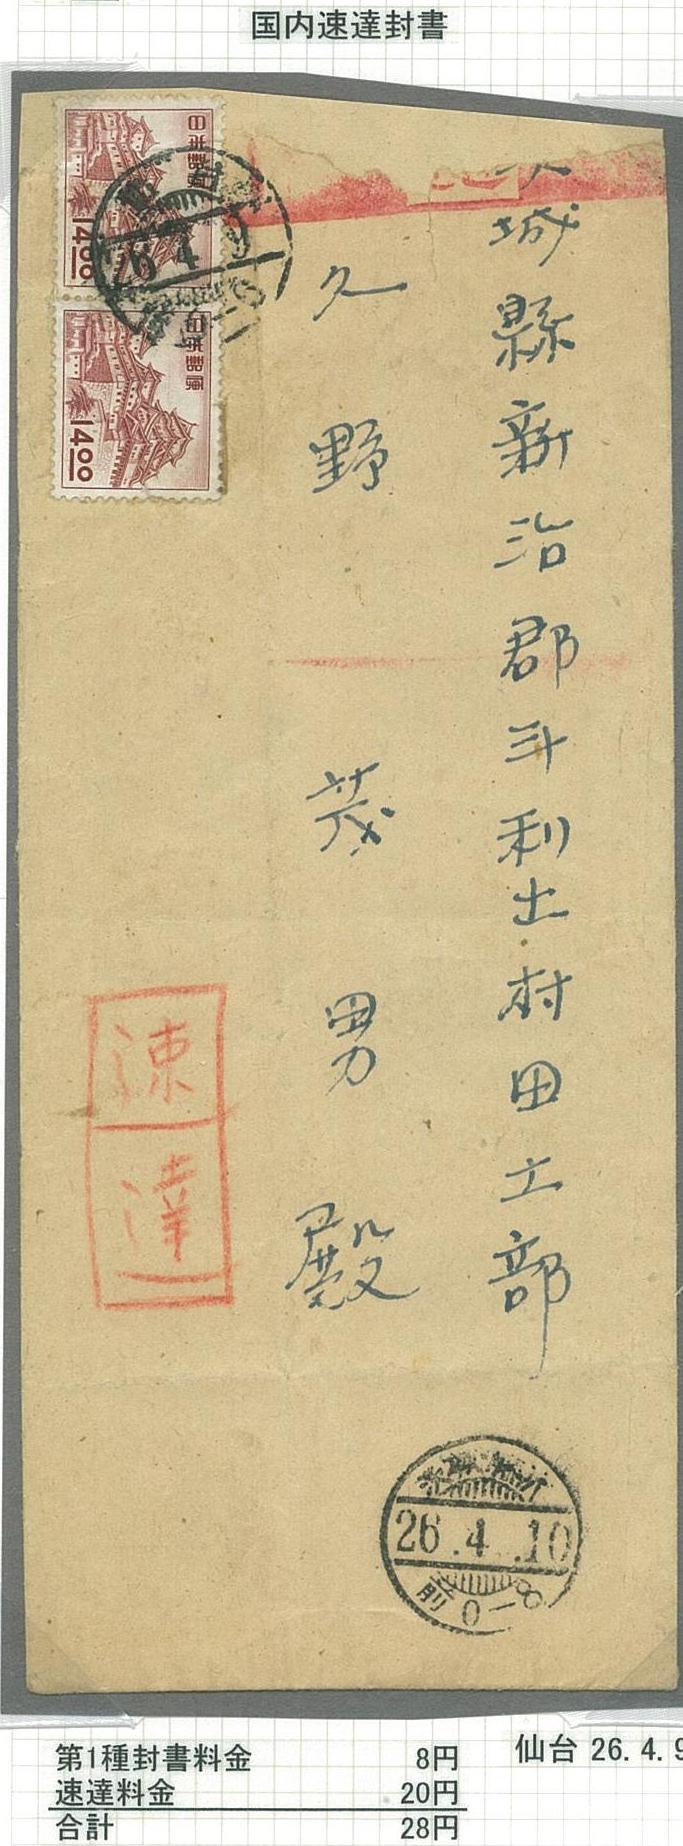 国内速達封書
日本郵便
14.00
日本郵便
14.00
26.4
城縣新治郡斗利出村田土部
久野茂男殿
速達
26.4.10
前0-8
第1種封書料金 8円
速達料金 20円
合計 28円
仙台 26.4.9